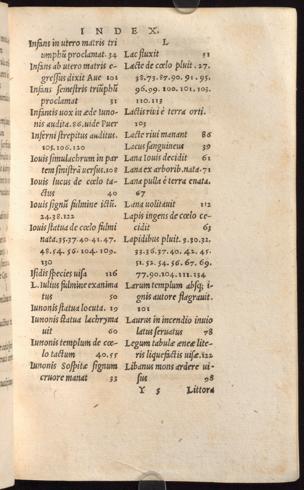 INDEX.
Infans in utero matris tri
umphũ proclamat. 34
Infans ab utero matris e-
gressus dixit Aue 101
Infans semestris triũphũ
proclamat 31
Infantis uox in æde Iuno-
nis audita. 86. uide Puer
Inferni strepitus auditus.
105.106.120
Iouis simulachrum in par
tem sinistrã uersus. 108
Iouis lucus de cœlo ta-
ctus 40
Iouis signũ fulmine ictũ.
24.38.122
Iouis statua de cœlo fulmi
nata. 35.37.40.41.47.
48.54.56.104.109.
130
Isidis species uisa 126
L. Iulius fulmine exanima
tus 50
Iunonis statua locuta. 19
Iunonis statua lachryma
uit 60
Iunonis templum de cœ-
lo tactum 40.55
Iunonis Sospitæ signum
cruore manat 33
L
Lac fluxit 51
Lacte de cœlo pluit. 27.
38.73.87.90.91.95.
96.99.100.101.103.
110.113
Lactis riui è terra orti.
103
Lacte riui manant 86
Lacus sanguineus 39
Lana Iouis decidit 61
Lana ex arborib. nata. 71
Lana pulla è terra enata.
67
Lana uolitauit 112
Lapis ingens de cœlo ce-
cidit 63
Lapidibus pluit. 3.30.32.
33.36.37.40.42.45.
51.52.54.56.67.69.
77.90.104.111.134
Larum templum absq; i-
gnis autore flagrauit.
101
Laurus in incendio inuio
latus seruatus 78
Legum tabulæ æneæ lite-
ris liquefactis uisæ. 122
Libanus mons ardere ui-
sus 98
Y 5 Littora